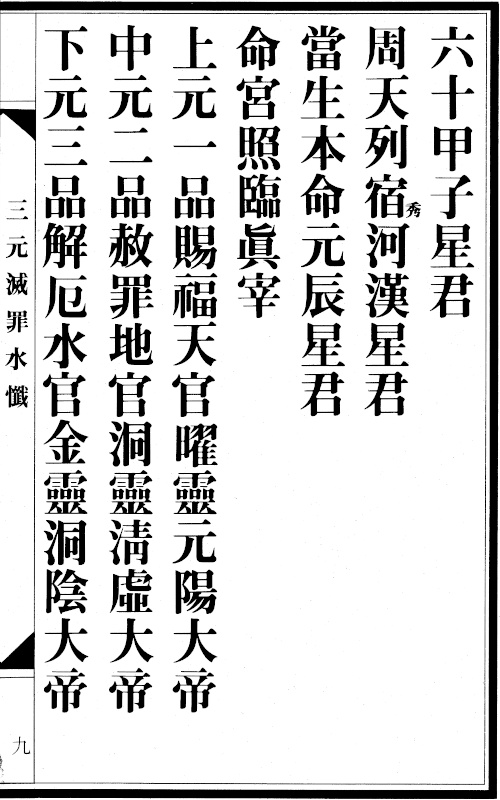 六十甲子星君
周天列宿秀河漢星君
當生本命元辰星君
命宮照臨眞宰
上元一品賜福天官曜靈元陽大帝
中元二品赦罪地官洞靈淸虛大帝
下元三品解厄水官金靈洞陰大帝
三元滅罪水懺
九